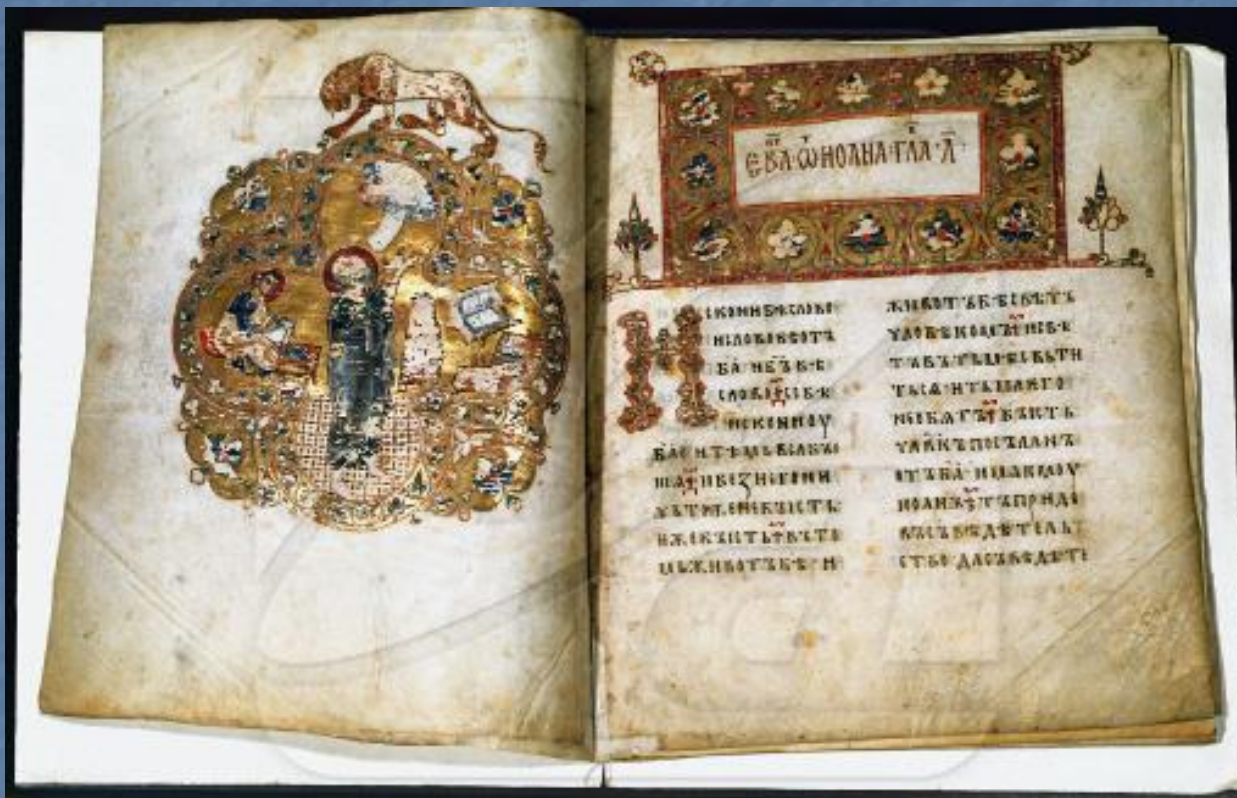 ЕВⷢ҇А · Ѿ ИОАНА · ГЛАⷡ҇ · А҃
ИСКОНИ БѢ СЛОВО
И СЛОВО БѢ ОТЪ
БА҃ · И БЪ҃ БѢ
СЛОВО · СЕ БѢ
ИСКОНИ ОУ
БА҃ · И ТѢМЬ ВЬСА БЫ
ША · И БЕЗ НЕГО НИ
ЧЬТОЖЕ НЕ БЫСТЬ ·
ЕЖЕ БЫСТЬ · ВЪ ТО
МЬ ЖИВОТЪ БѢ · И
ЖИВОТЪ БѢ СВѢТЪ
ЧЛОВѢКОМЪ · И СВѢ
ТЪ ВЪ ТЬМѢ СВЬТИ
ТЬ СѦ · И ТЬМА ѤГО
НЕ ОБѦТЪ · БЫСТЬ
ЧЛ҃КЪ ПОСЪЛАНЪ
ОТЪ БА҃ · ИМѦ ѤМОУ
ИОАНЪ · ТЪ ПРИДЕ
ВЪ СЪВѢДѢТЕЛЬ
СТВО · ДА СЪВѢДѢТЕ